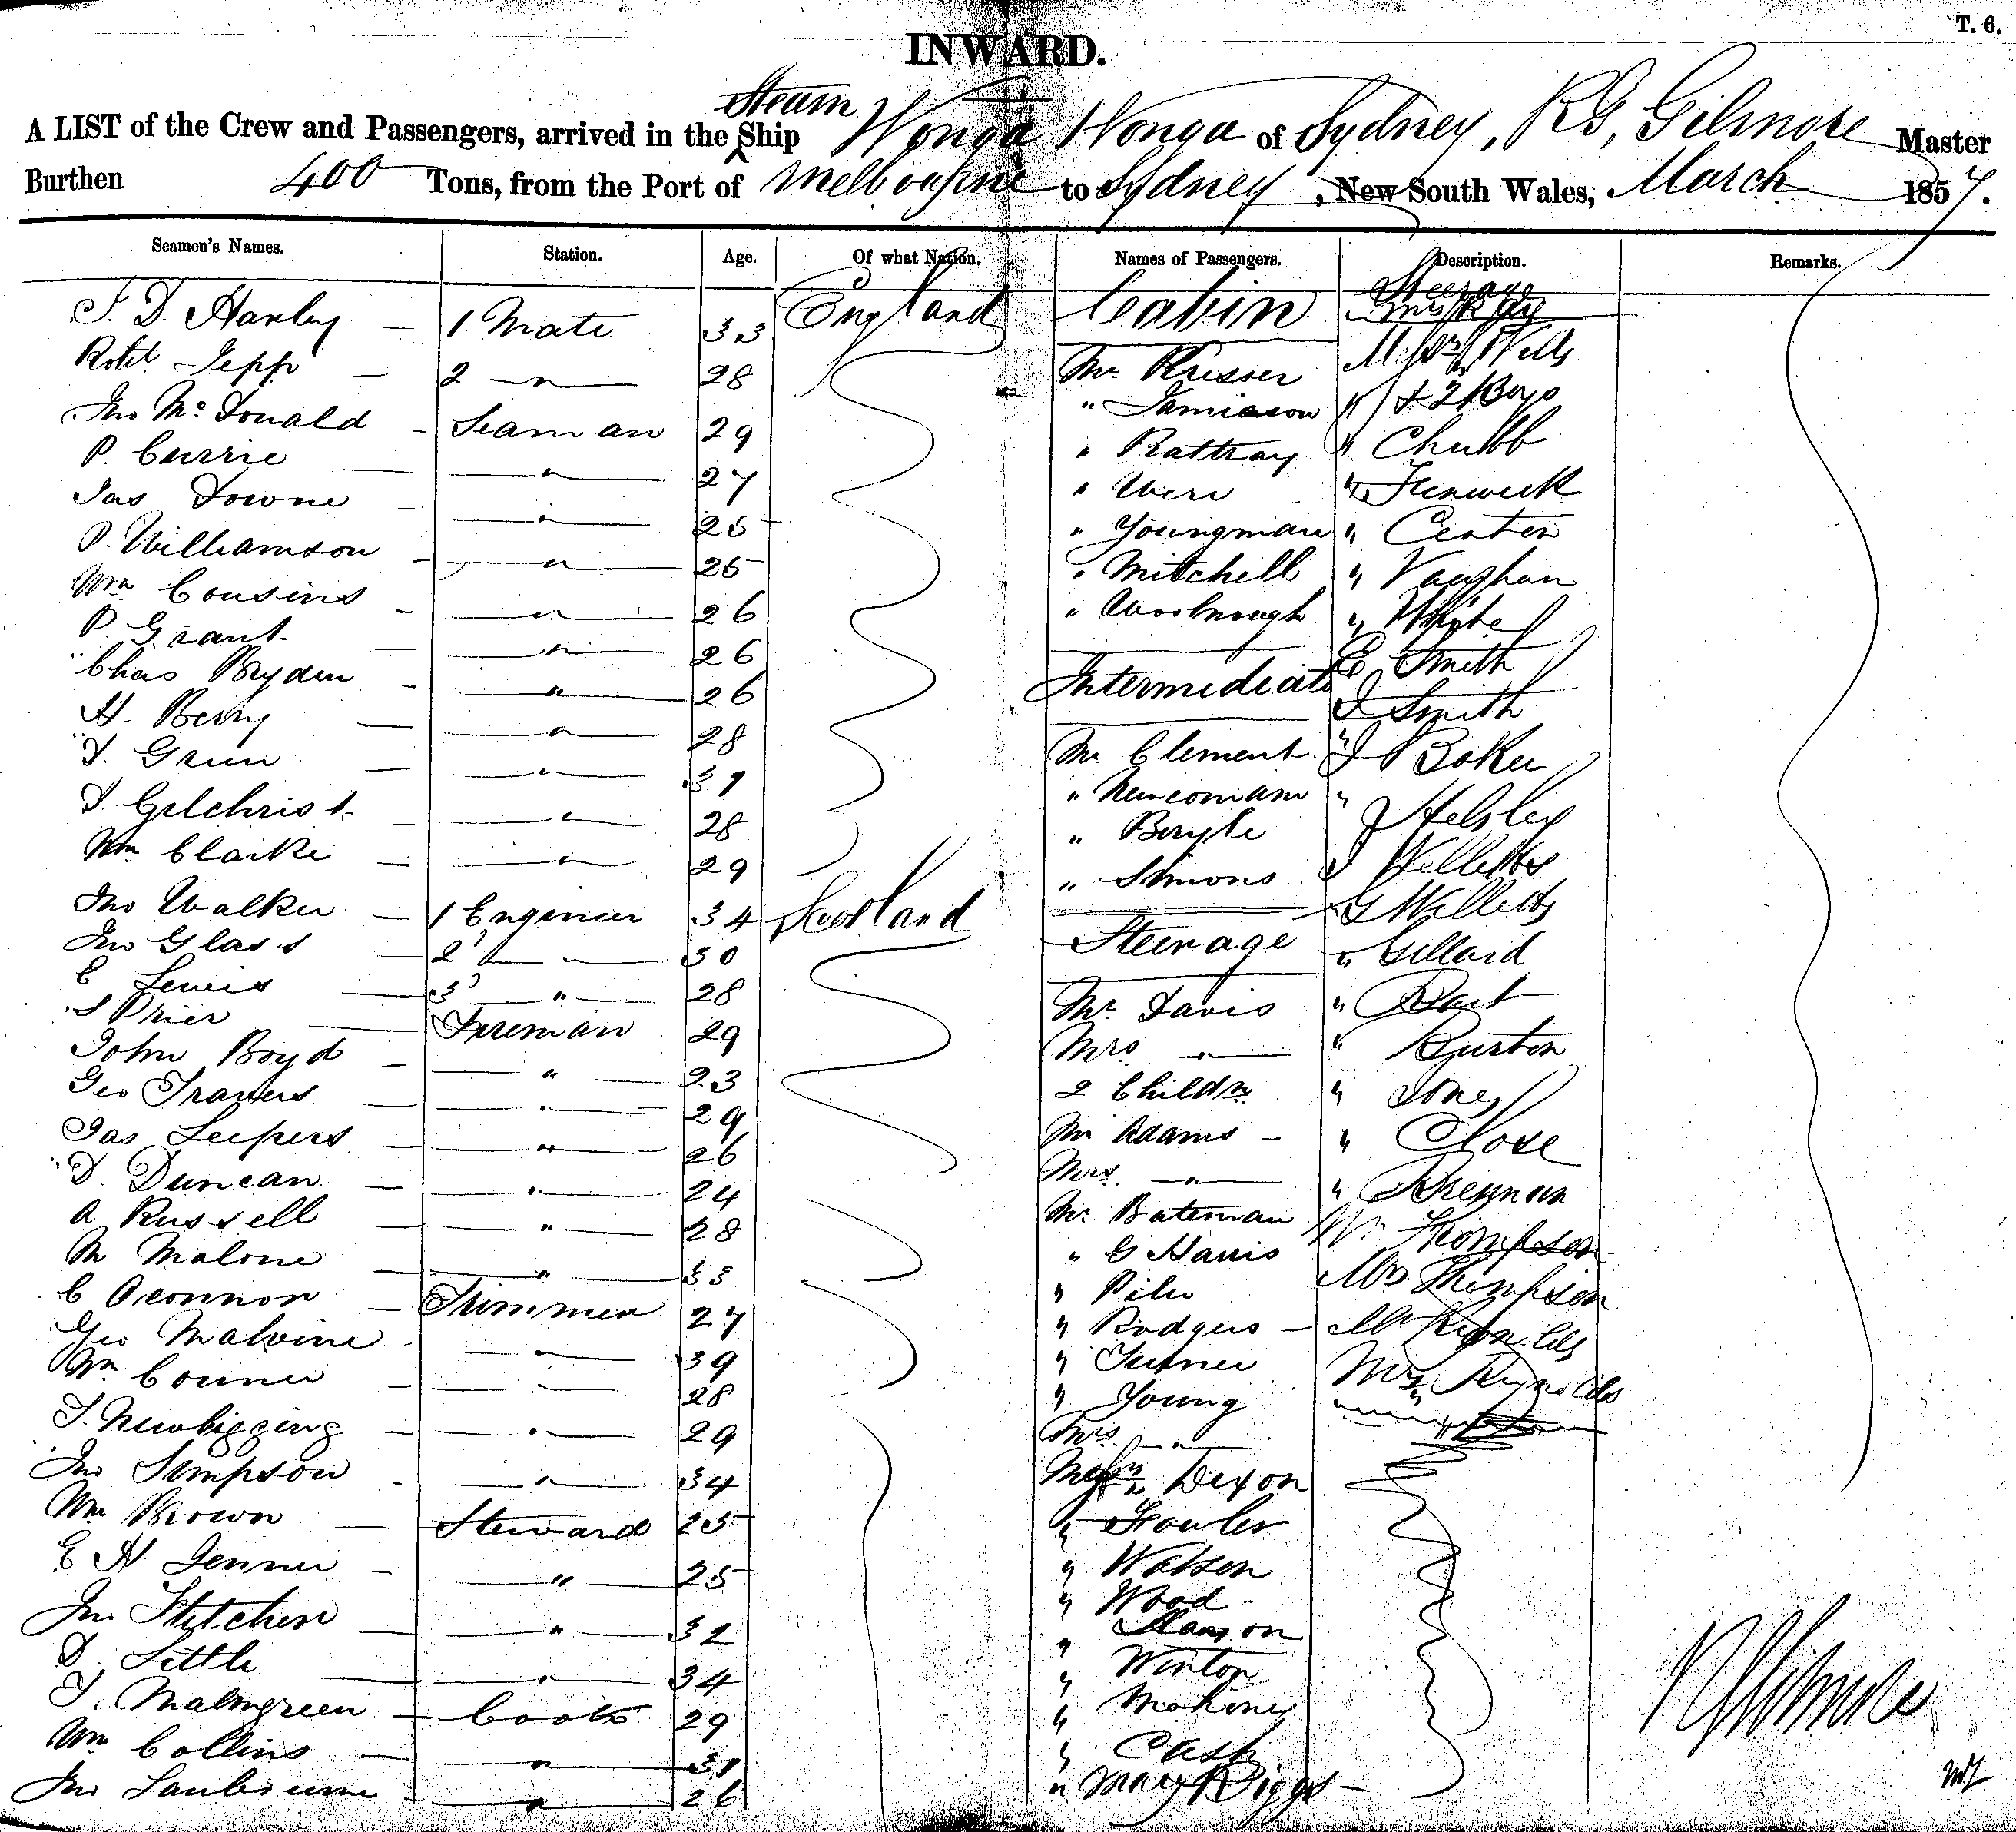 T. 6.
INWARD.
Steam
A LIST of the Crew and Passengers, arrived in the Ship Wonga Wonga of Sydney, RG, Gilmore Master
Burthen 400 Tons, from the Port of Melbourne to Sydney, New South Wales, March 1857.
Seamen's Names. Station. Age. Of what Nation. Names of Passengers. Description. Remarks.
1 Mate 33 England Cabin Steerage
Robt Jepp 2 " 28 Mr Messrs Wells
Jno McDonald Seaman 29 " Jamieson " & 2 Boys
P. Currie " 27 " Rattray " Chubb
Jas Downe " 25 " Were " Fenwick
P. Williamson " 25 " Youngman "
Wm Cousins " 26 " Mitchell " Vaughan
P. Grant " 26 " " White
Chas Bryden " 26 Intermediate E Smith
H. Berry " 28 J Smith
" 31 Mr Clement " J Baker
J. Gilchrist " 28 " Newcomam "
Wm Clarke " 29 " J Willetts
Jno Walker 1 Engineer 34 Scotland " Simons G Willetts
Jno Glass 2 " 30 Steerage " Gillard
E Lewis 3 " 28 Mr Davis "
S Prier Fireman 29 Mrs " " Burton
John Boyd " 23 2 Childn " Jones
Geo Travers " 29 Mr Adams " Close
Jas Leepers " 26 Mrs " " Brennan
D. Duncan " 24 Mr Bateman Mr Thompson
A Russell " 28 " G Harris Mrs Thompson
M Malone " 33 " Mr Reynolds
C Oconnor Trimmer 27 " Rodgers Mrs Reynolds
Geo Malvine " 39 " Turner
Wm Conner " 28 " Young
J. Newbigging " 29 Mrs "
Jno Simpson " 34 Messrs Dixon
Wm Brown Steward 25 " Fowler
E H Jenner " 25 " Watson
Jno Fletcher " 32 " Wood
D. Little " 34 "
J. Malmgreen Cook 29 " Winton
Wm Collins " 31 " Mahoney
Jno " 26 " Cash
" Mary Biggs
RGGilmore